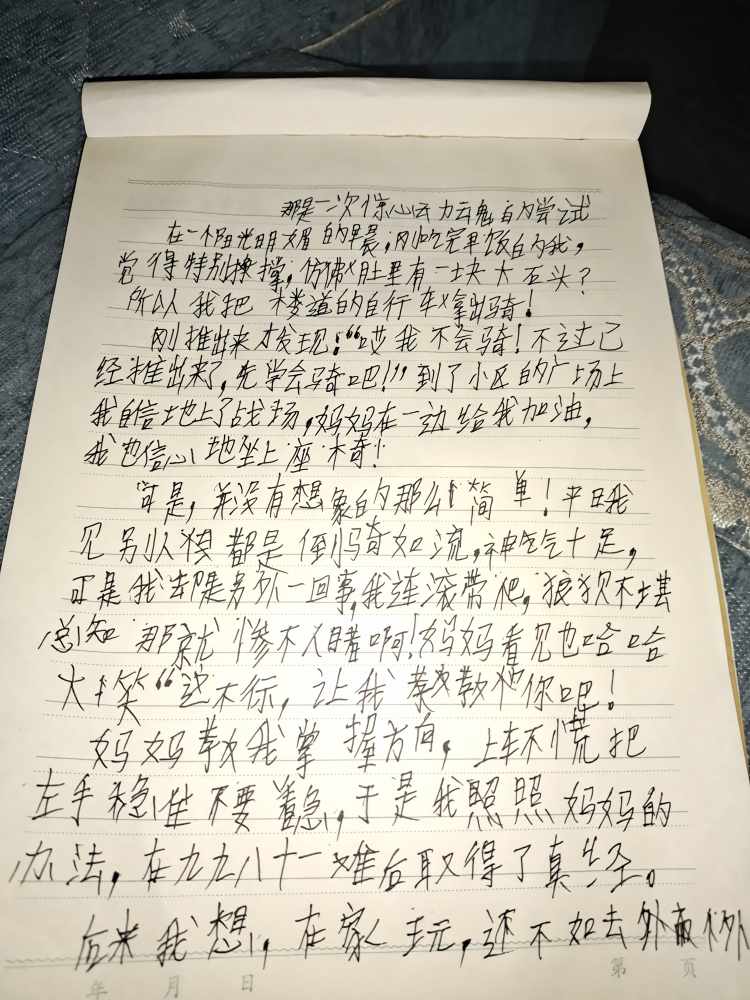 那是一次惊心动魄的尝试
在一个阳光明媚的早晨,刚吃完早饭的我,
觉得特别撑,仿佛肚里有一块大石头?
所以我把楼道的自行车拿出骑!
刚推出来才发现:“哎我不会骑!不过已
经推出来了,先学会骑吧!”到了小区的广场上
我自信地上了战场,妈妈在一边给我加油,
我也信心地坐上座椅!
可是,并没有想象的那么简单!平日我
见别人骑都是倒骑如流,神气十足,
可是我却是另外一回事,我连滚带爬,狼狈不堪
总知那就惨不人睹啊!妈妈看见也哈哈
大笑“还不行,让我教教你吧!
妈妈教我掌握方向,上车不慌把
左手稳住不要着急,于是我照照妈妈的
办法,在九九八十一难后取得了真经。
后来我想,在家玩,还不如去外
年 月 日 第 页